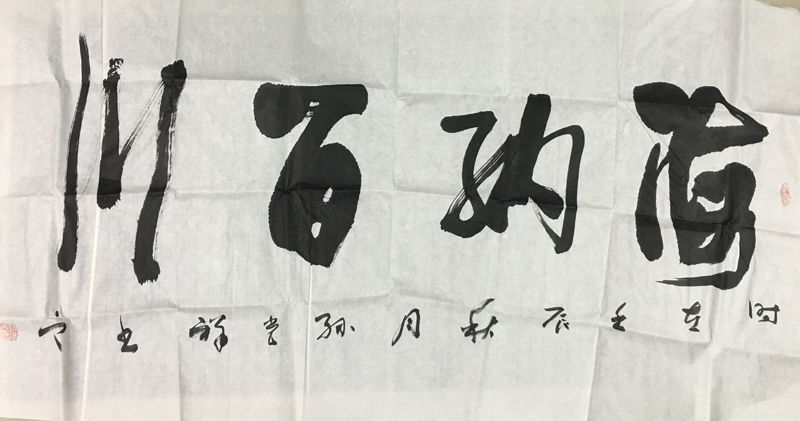 海纳百川
时在壬辰秋月孙常祥书